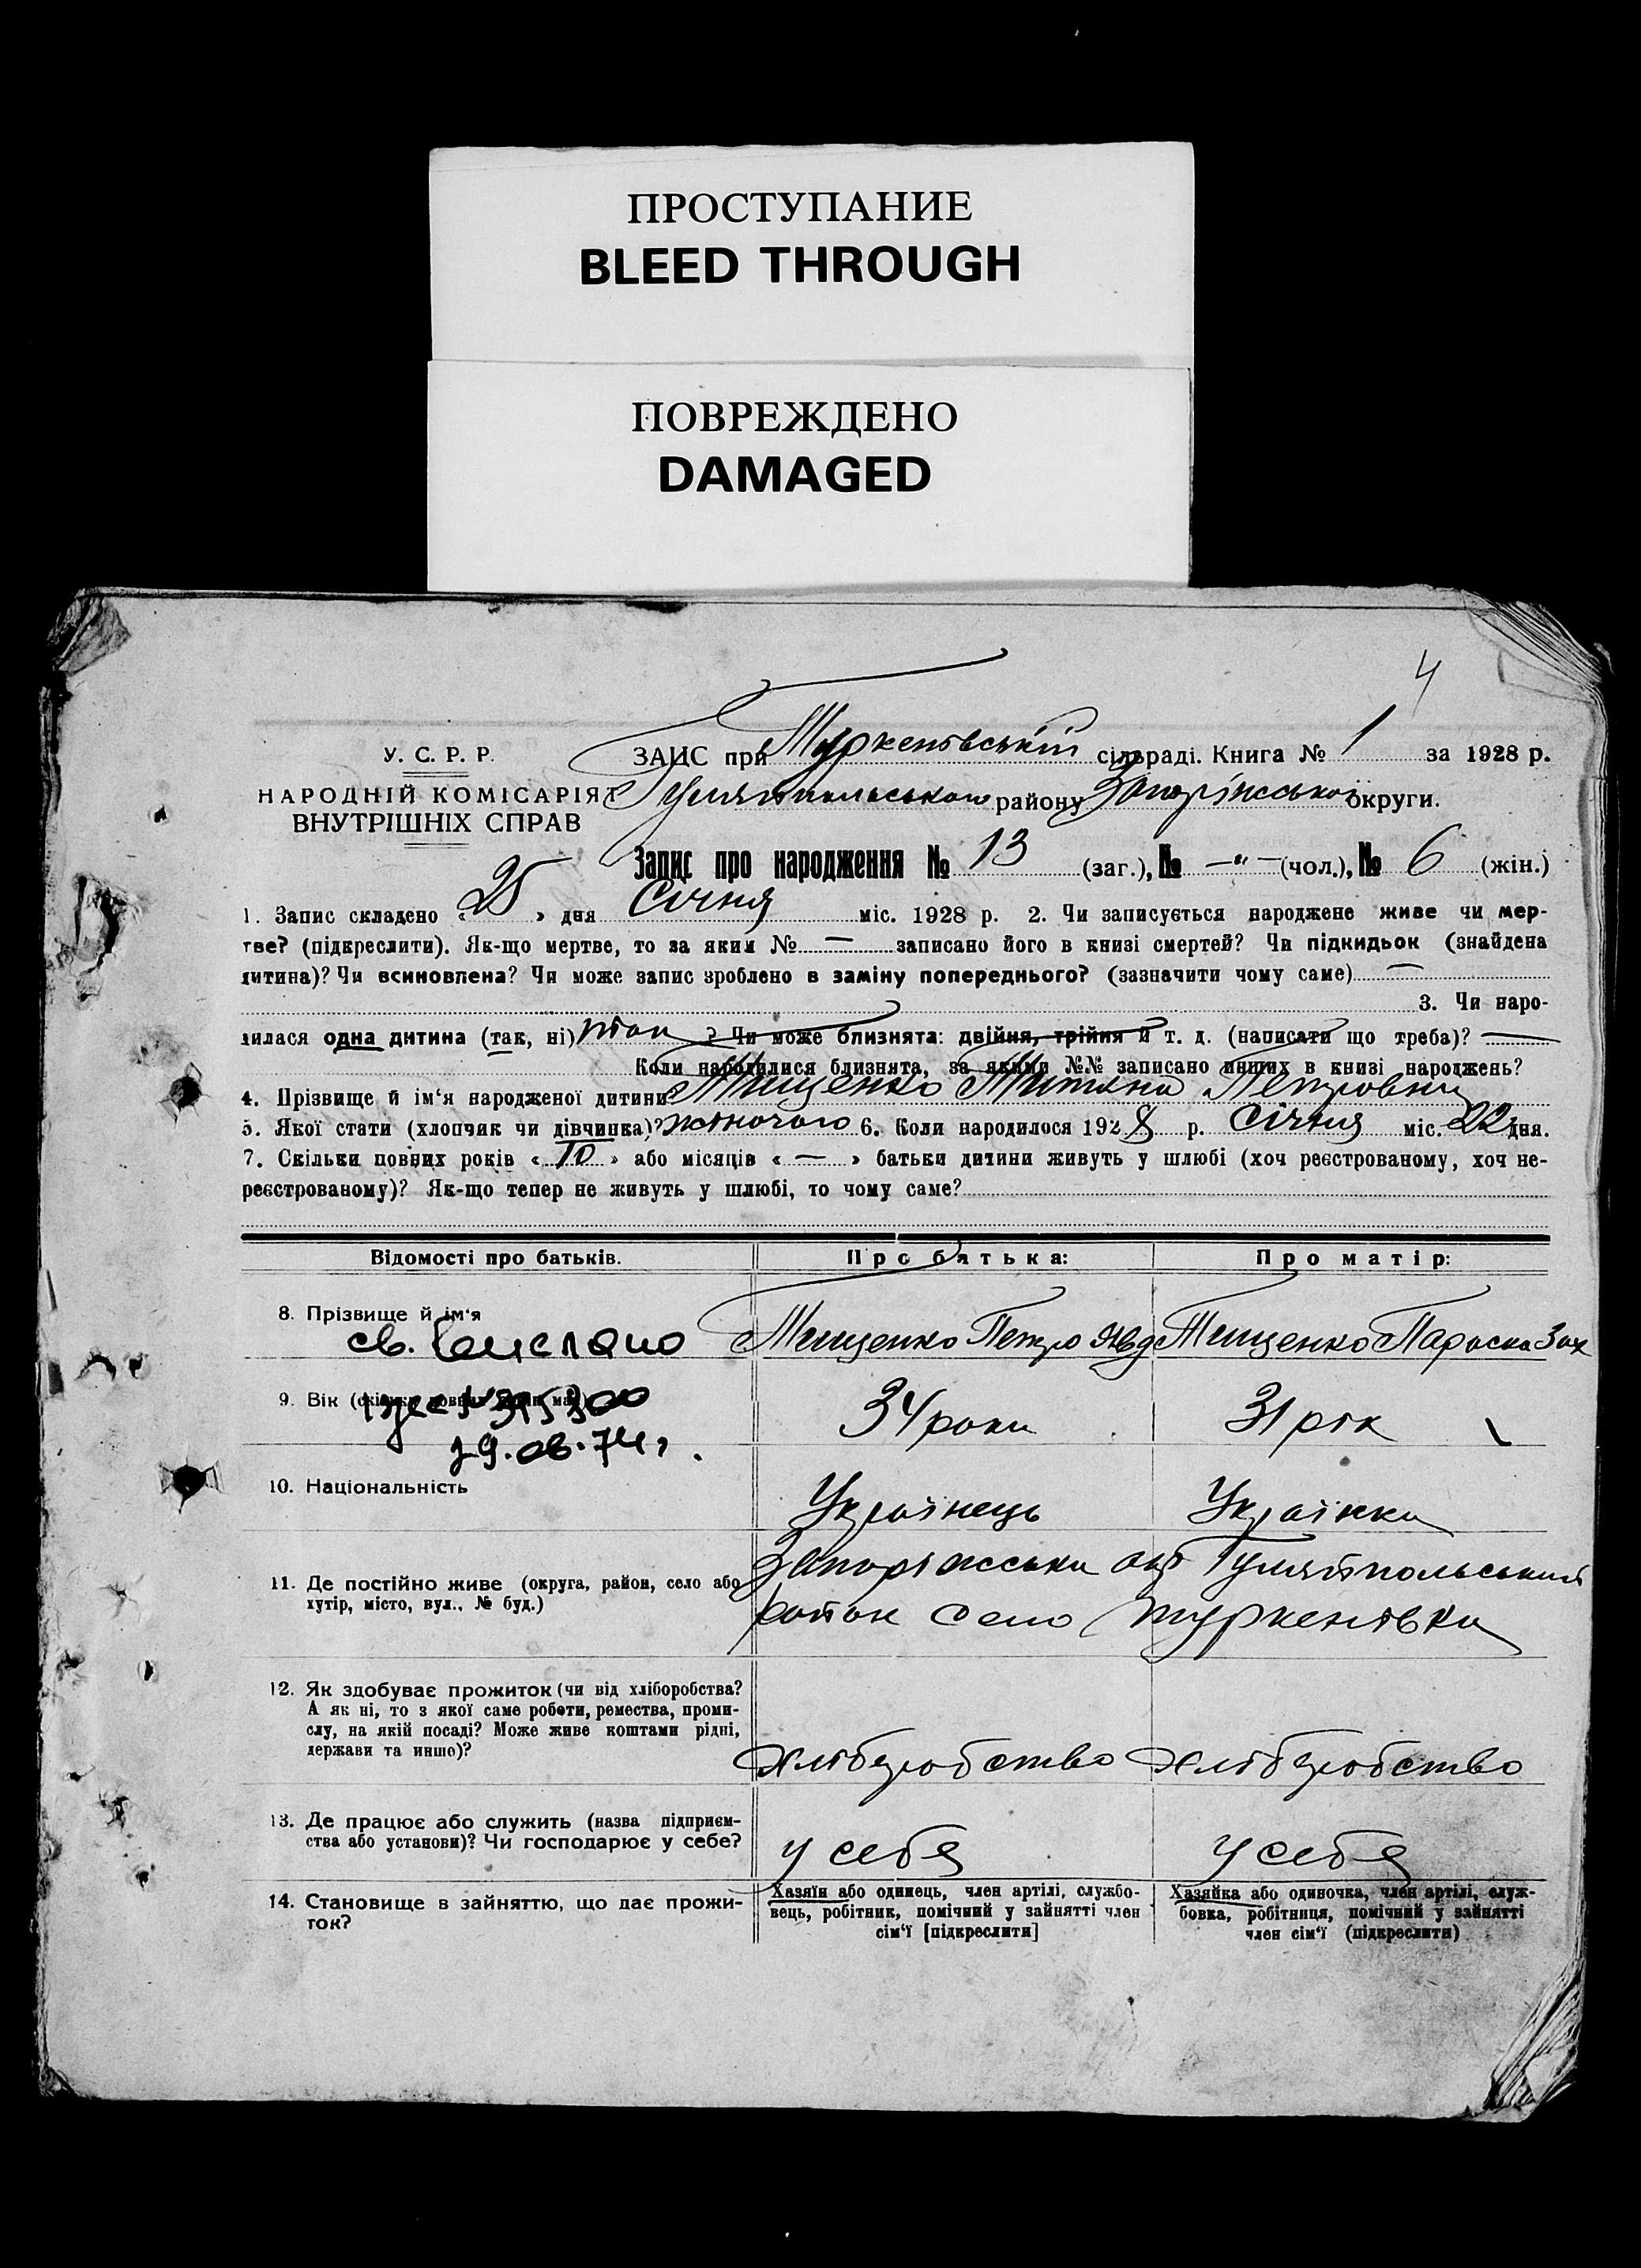 ПРОСТУПАНИЕ
BLEED THROUGH
ПОВРЕЖДЕНО
DAMAGED
4
У. С. Р. Р.
НАРОДНІЙ КОМІСАРІЯТ
ВНУТРІШНІХ СПРАВ
ЗАЦС при Туркенівській сільраді. Книга № 1 за 1928 р.
Гуляйпольського району Запоріжської округи.
Запис про народження № 13 (заг.), № —"— (чол.), № 6 (жін.)
1. Запис складено « 25 » дня Січня міс. 1928 р. 2. Чи записується народжене живе чи мер-
тве? (підкреслити). Як-що мертве, то за яким № — записано його в книзі смертей? Чи підкидьок (знайдена
дитина)? Чи всиновлена? Чи може запис зроблено в заміну попереднього? (зазначити чому саме) —
3. Чи наро-
дилася одна дитина (так, ні) так ? Чи може близнята: двійня, трійня й т. д. (написати що треба)? —
Коли народилися близнята, за якими №№ записано инших в книзі народжень?
4. Прізвище й ім‘я народженої дитини Мищенко Петровна
5. Якої стати (хлопчик чи дівчинка)? жіночого 6. Коли народилося 1928 р. Січня міс. 22 дня.
7. Скільки повних років « 10 » або місяців « — » батьки дитини живуть у шлюбі (хоч реєстрованому, хоч не-
реєстрованому)? Як-що тепер не живуть у шлюбі, то чому саме?
Відомості про батьків. Про батька: Про матір:
8. Прізвище й ім‘я Мищенко Петро Явд Мищенко Параска Зах
св. выслано
9. Вік (скільки повних років має) 34 роки 31 рік
29.08.74г.
10. Національність Українець Українка
11. Де постійно живе (округа, район, село або
хутір, місто, вул., № буд.)
Запоріжська окр Гуляйпольський
район село Туркенівка
12. Як здобуває прожиток (чи від хліборобства?
А як ні, то з якої саме роботи, ремества, проми-
слу, на якій посаді? Може живе коштами рідні,
держави та иншо)?
Хліборобство Хліборобство
13. Де працює або служить (назва підприєм-
ства або установи)? Чи господарює у себе?
у себя у себя
14. Становище в зайняттю, що дає прожи-
ток?
Хазяїн або одинець, член артілі, службо-
вець, робітник, помічний у зайнятті член
сім‘ї [підкреслити]
Хазяйка або одиночка, член артілі, служ-
бовка, робітниця, помічний у зайнятті
член сім‘ї (підкреслити)